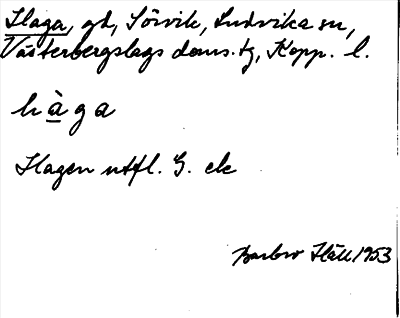 Haga, gd, Sörvik, Ludvika sn,
Västerbergslags doms. tg, Kopp. l.
hàga
Hagen utfl. G. ek
Barbro Häll 1953